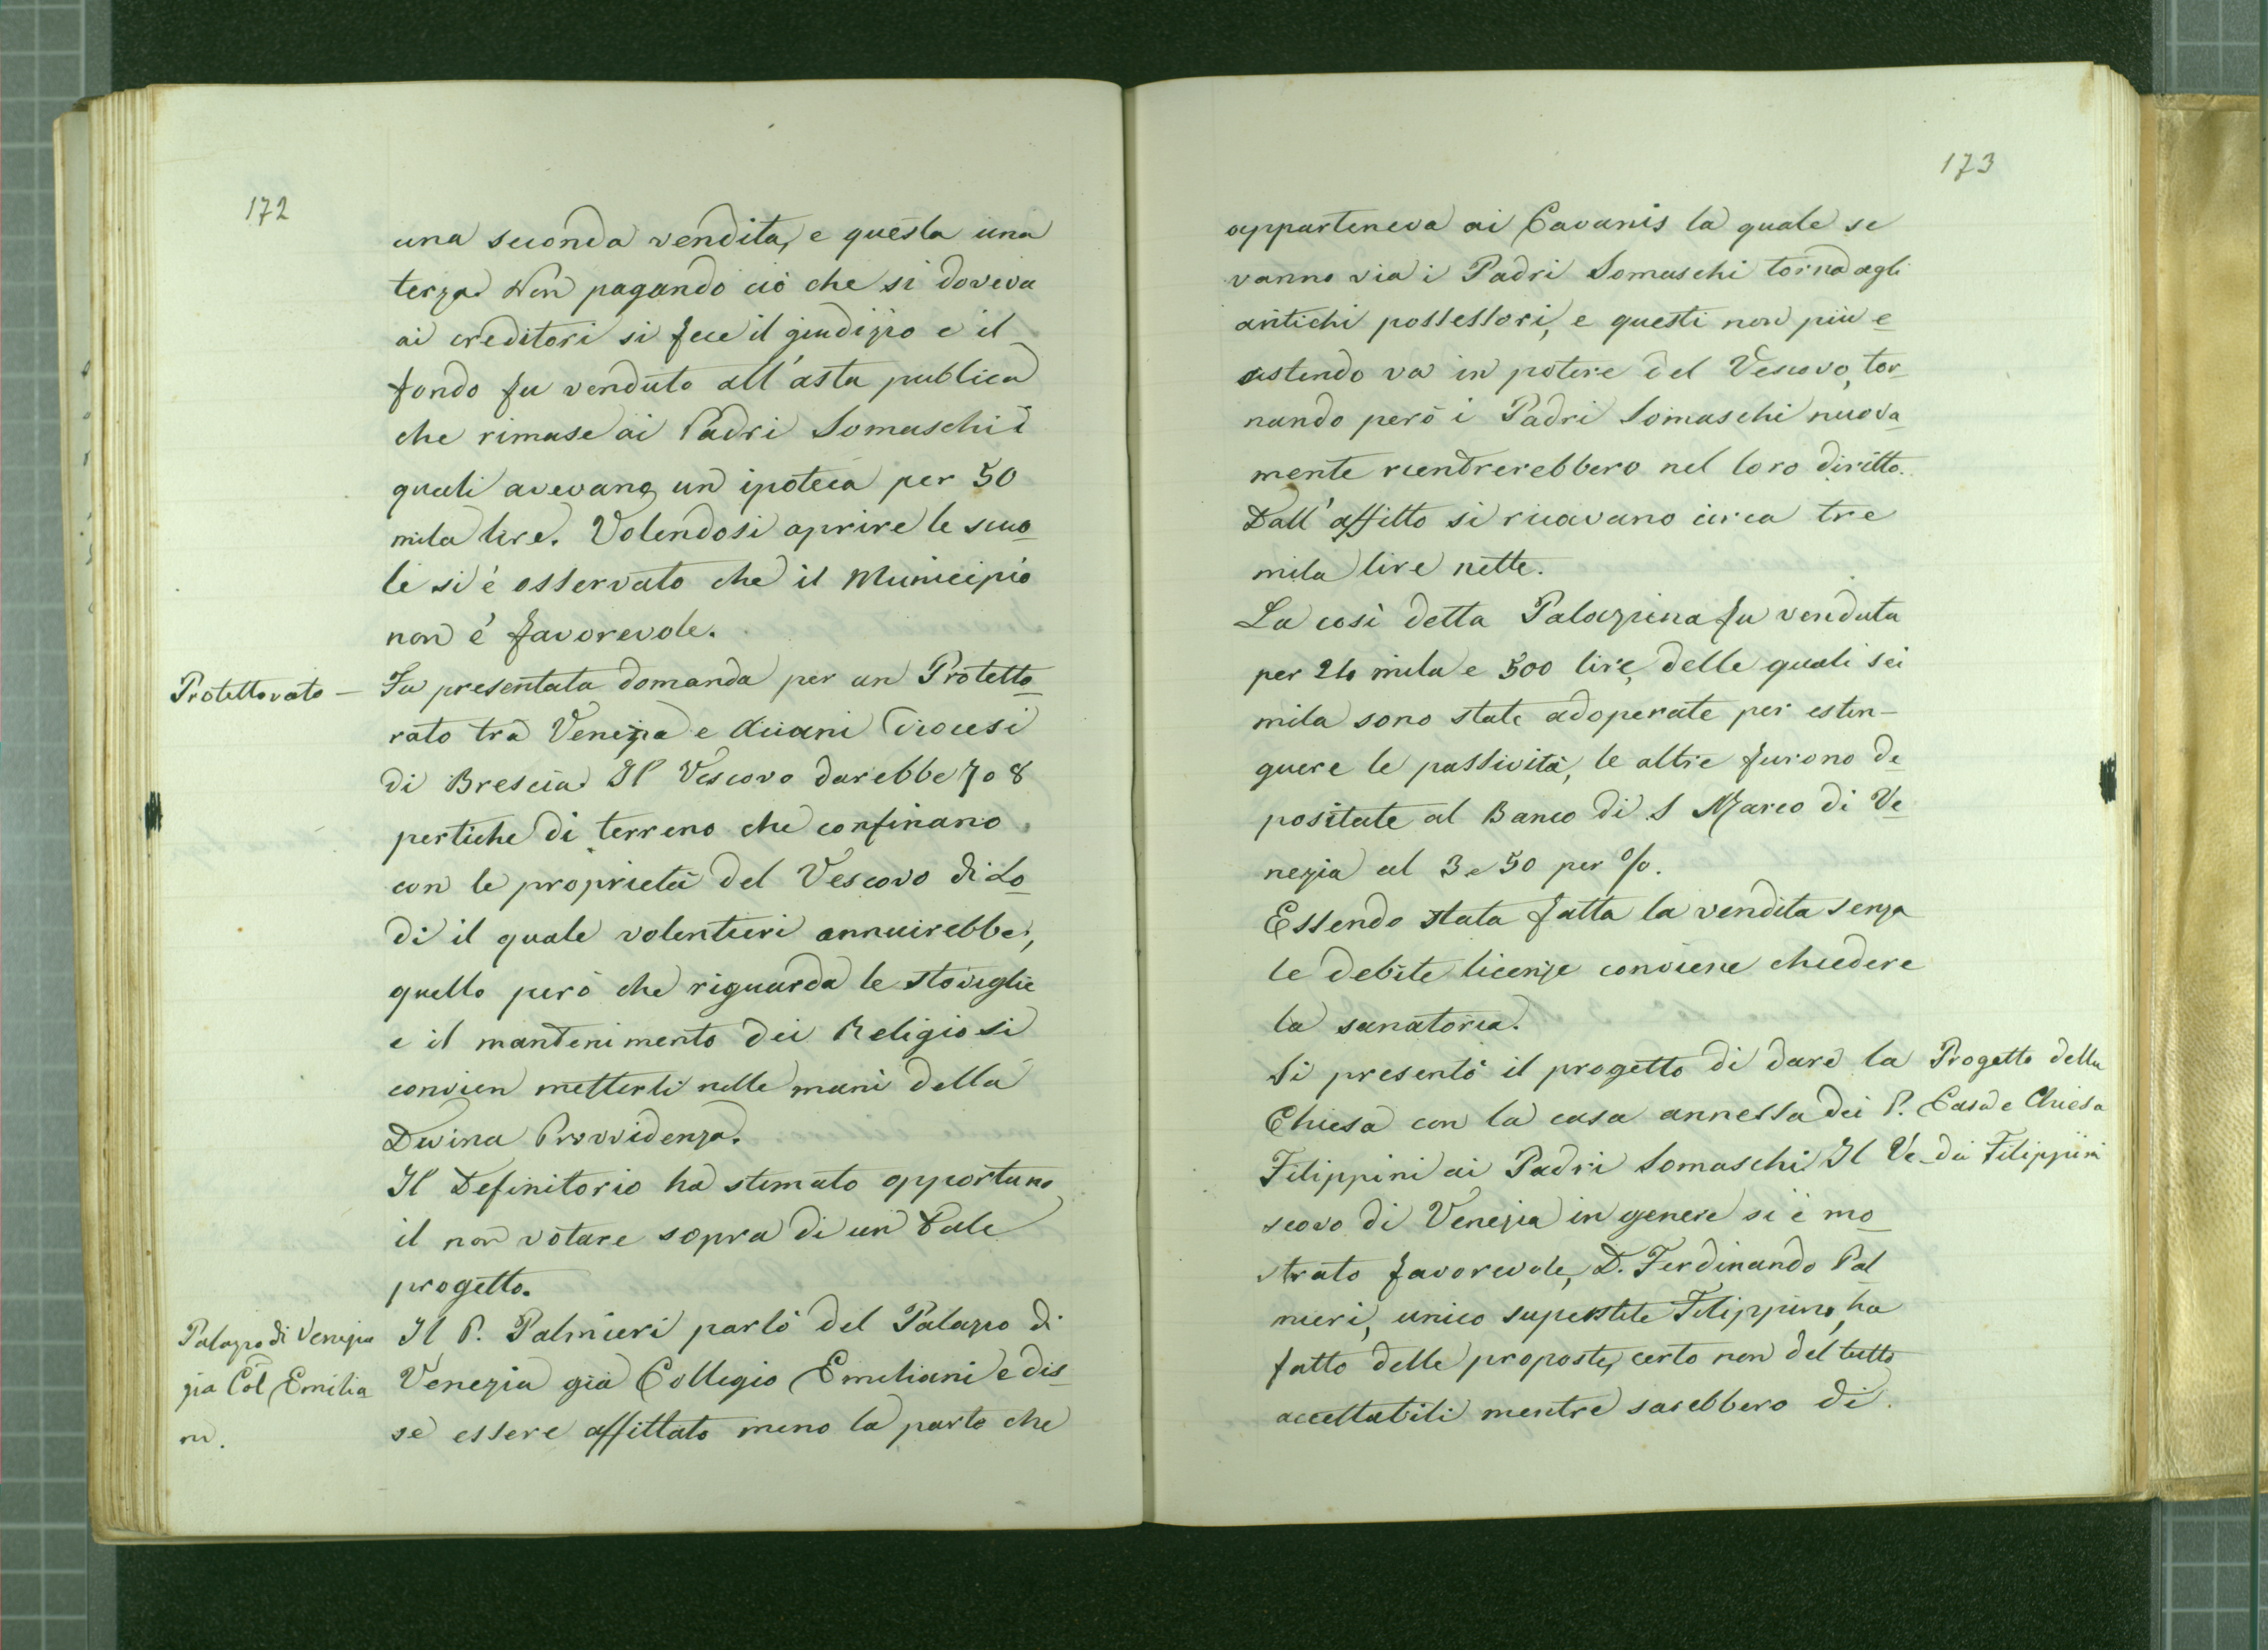 172
una seconda vendita, e questa una
terza. Non pagando ciò che si doveva
ai creditori si fece il giudizio e il
fondo fu venduto all'asta publica
che rimase ai Padri Somaschi i
quali avevano un ipoteca per 50
mila lire. Volendosi aprire le scuo
le si è osservato che il Municipio
non è favorevole.
Protettorato — Fu presentata domanda per un Protetto
rato tra Venezia e diocesi
di Brescia. Il Vescovo darebbe 7 o 8
pertiche di terreno che confinano
con le proprietà del Vescovo di Lo
di il quale volentieri annuirebbe,
quello però che riguarda le stoviglie
e il mantenimento dei Religiosi
convien metterli nelle mani della
Divina Provvidenza.
Il Definitorio ha stimato opportuno
il non votare sopra di un tale
progetto.
Palazzo di Venezia
già Col Emilia
ni.
Il P. Palmieri parlò del Palazzo di
Venezia già Collegio Emiliani e dis
se essere affittato meno la parte che
173
apparteneva ai Cavanis la quale se
vanno via i Padri Somaschi torna agli
antichi possessori, e questi non più e
sistendo va in potere del Vescovo, tor
nando però i Padri Somaschi nuova
mente rientrerebbero nel loro diritto.
Dall'affitto si ricavano circa tre
mila lire nette.
La così detta Palazzina fu venduta
per mila e 500 lire, delle quali sei
mila sono state adoperate per estin-
guere le passività, le altre furono de
positate al Banco di S Marco di Ve
nezia al 3 e 50 per %.
Essendo stata fatta la vendita senza
le debite licenze conviene chiedere
la sanatoria.
Si presentò il progetto di dare la
Chiesa con la casa annessa dei P.
Filippini ai Padri Somaschi. Il Ve
scovo di Venezia in genere si è mo
strato favorevole, D. Ferdinando Pal
mieri, unico superstite Filippino, ha
fatto delle proposte, certo non del tutto
accettabili mentre sarebbero di
Progetto della
Casa e Chiesa
dei Filippini